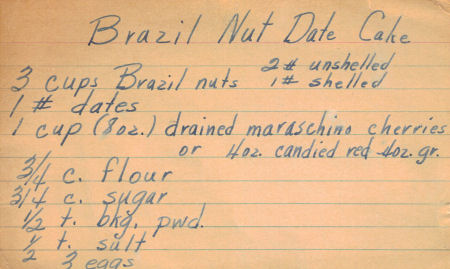 Brazil Nut Date Cake
3 cups Brazil nuts 2# unshelled
1# shelled
1 # dates
1 cup (8oz.) drained maraschino cherries
or 4oz. candied red 4oz. gr.
3/4 c. flour
3/4 c. sugar
1/2 t. bkg. pwd.
1/2 t. salt
3 eggs